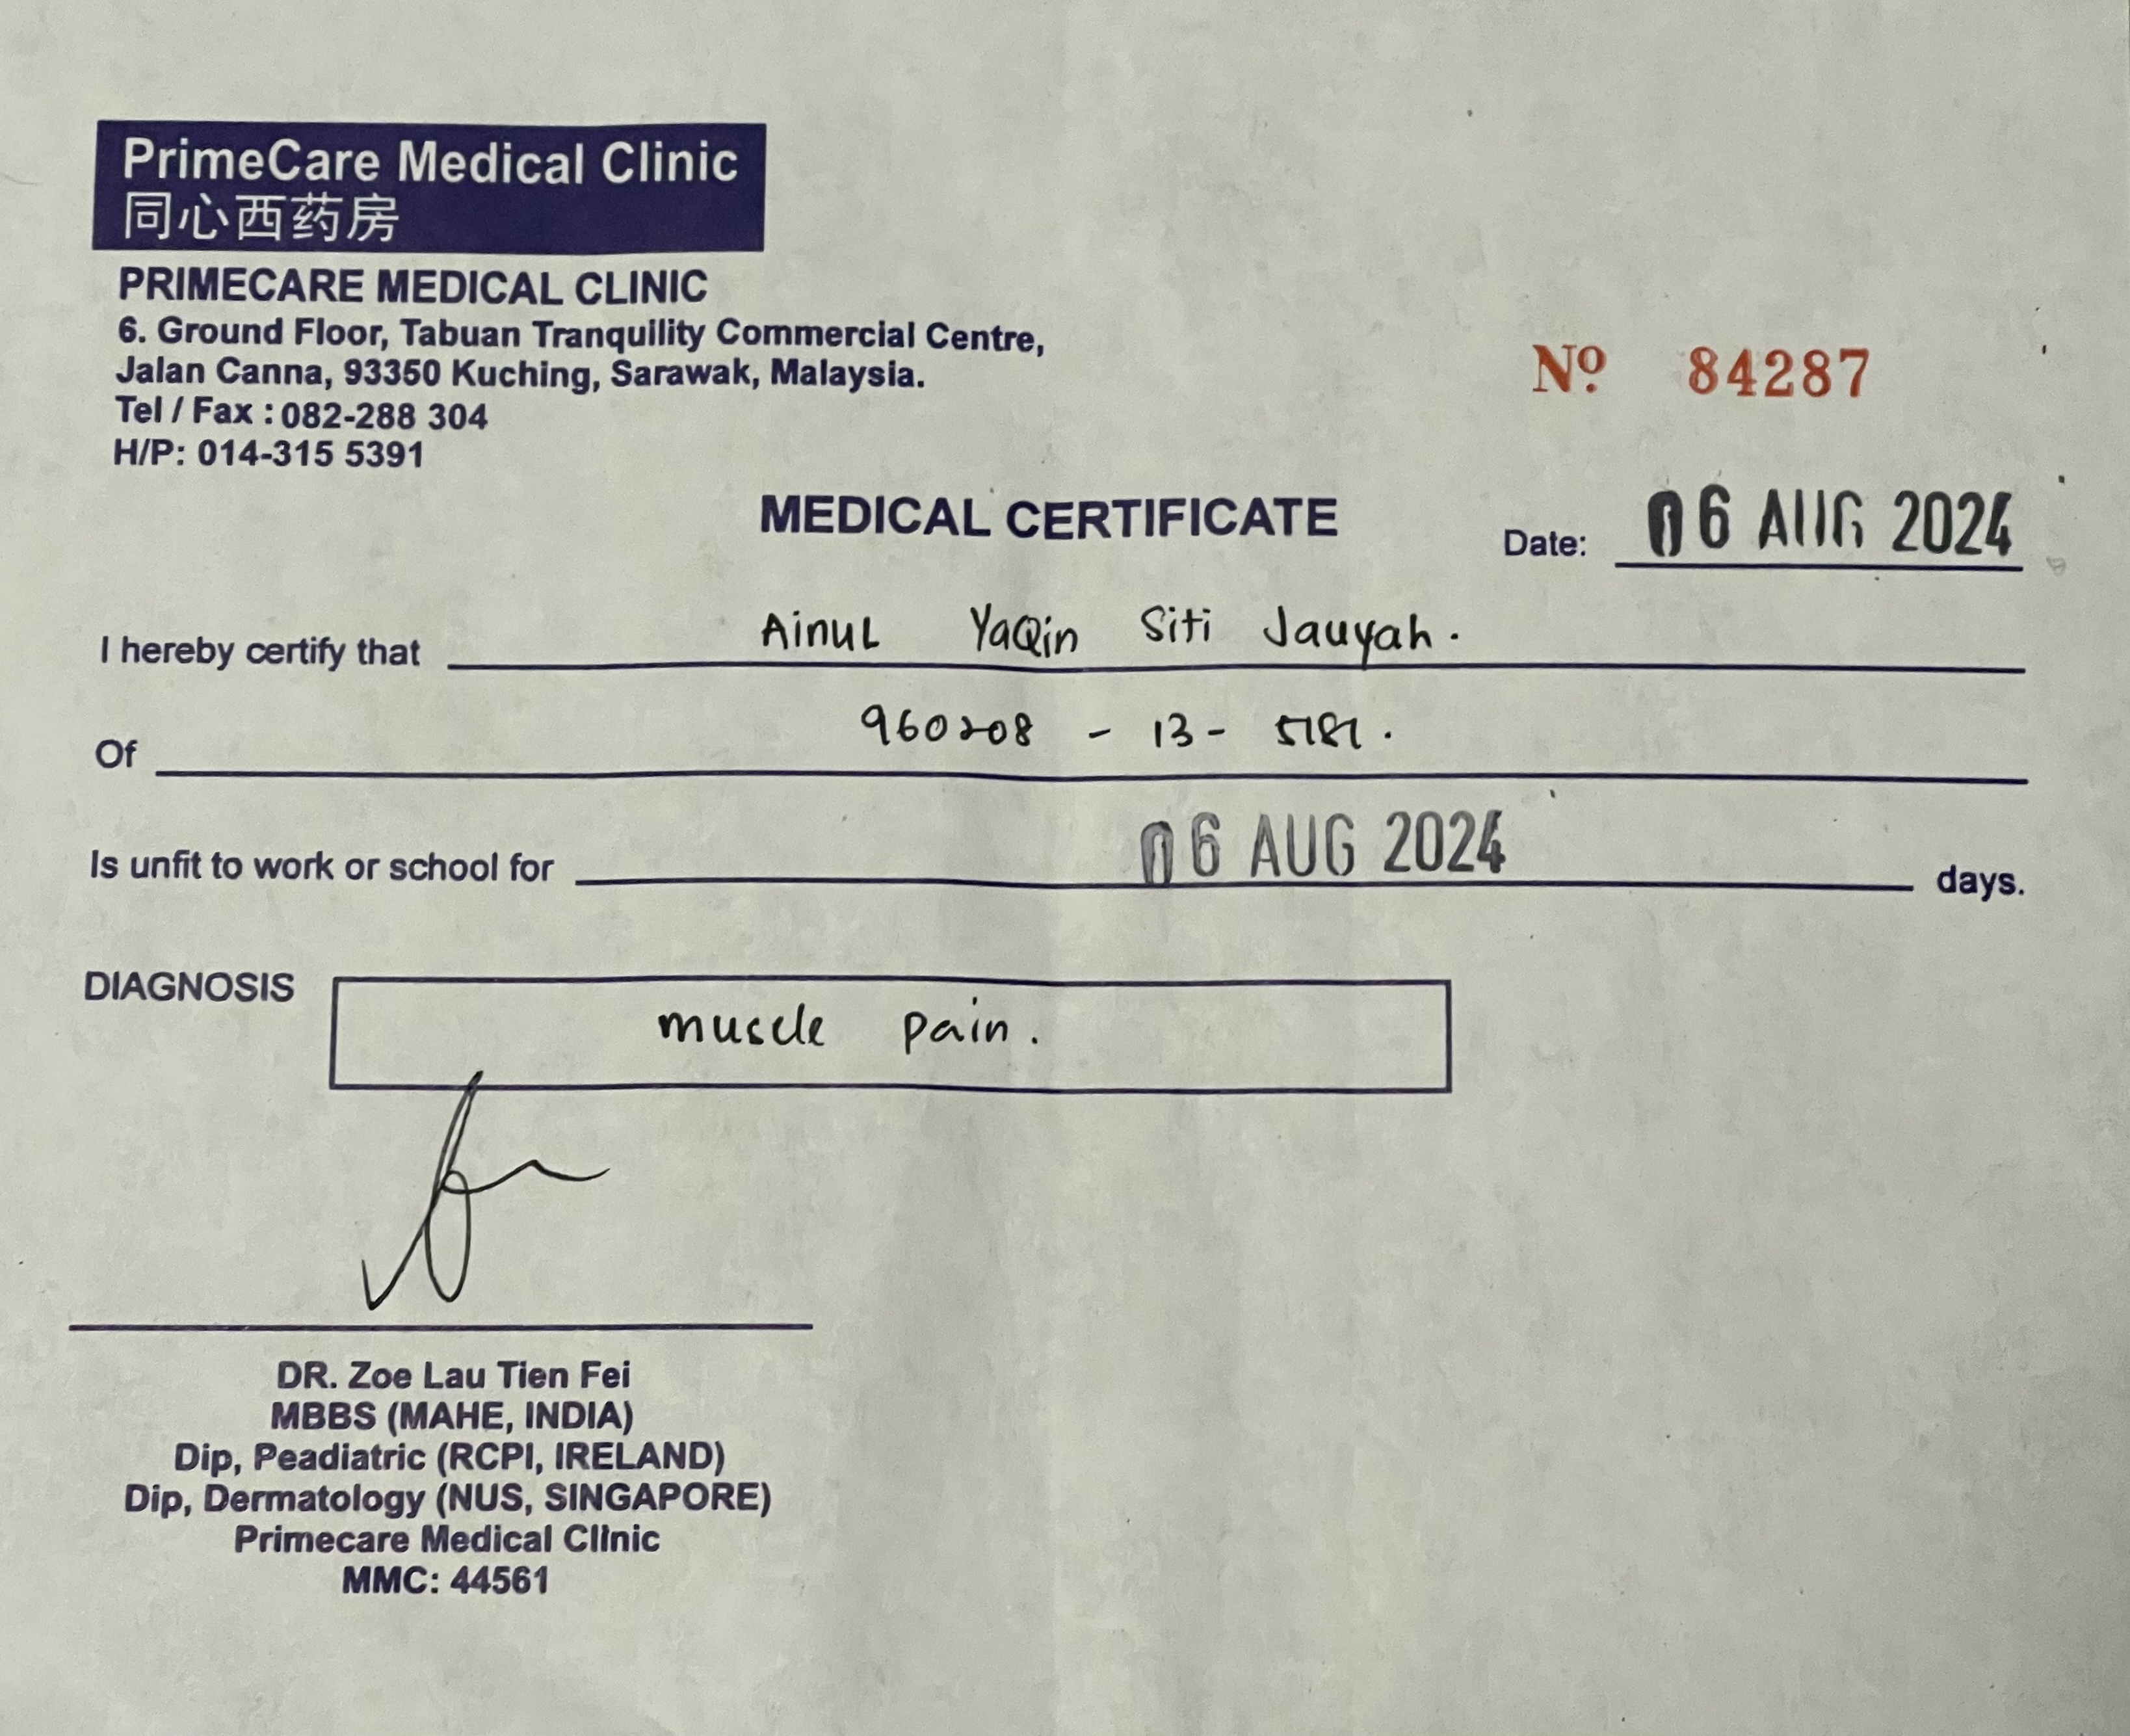 PrimeCare Medical Clinic
同心西药房
PRIMECARE MEDICAL CLINIC
6. Ground Floor, Tabuan Tranquility Commercial Centre,
Jalan Canna, 93350 Kuching, Sarawak, Malaysia.
Tel / Fax : 082-288 304
H/P: 014-315 5391
Nº 84287
MEDICAL CERTIFICATE
Date: 06 AUG 2024
I hereby certify that Ainul YaQin Siti Jauyah.
Of 960208 - 13 -
Is unfit to work or school for 06 AUG 2024 days.
DIAGNOSIS muscle pain.
DR. Zoe Lau Tien Fei
MBBS (MAHE, INDIA)
Dip, Peadiatric (RCPI, IRELAND)
Dip, Dermatology (NUS, SINGAPORE)
Primecare Medical Clinic
MMC: 44561